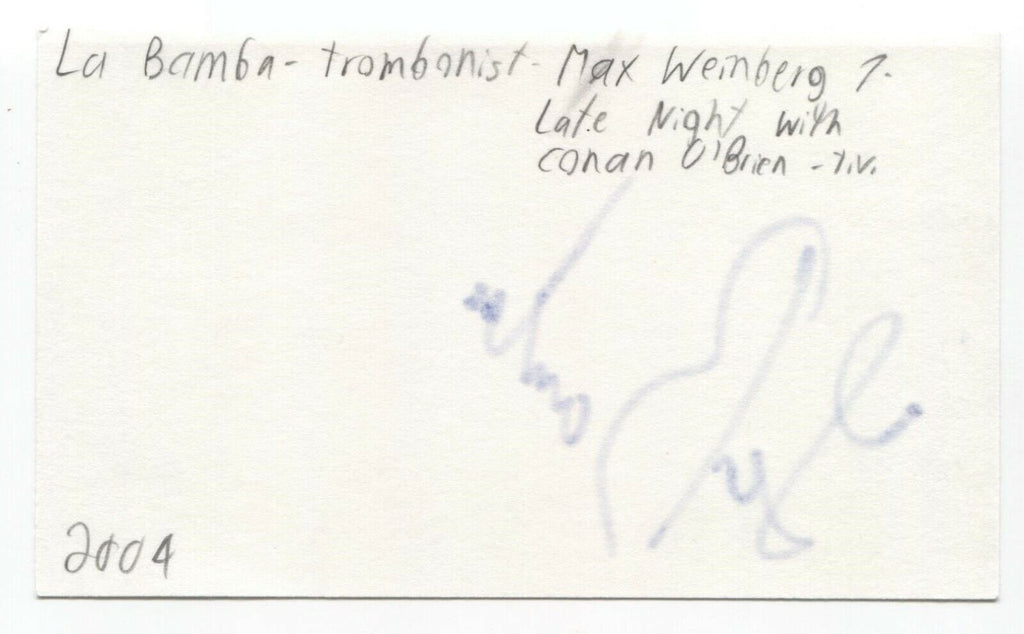 La Bamba - trombonist - Max Weinberg 7.
Late Night with
Conan O'Brien - T.V.
2004